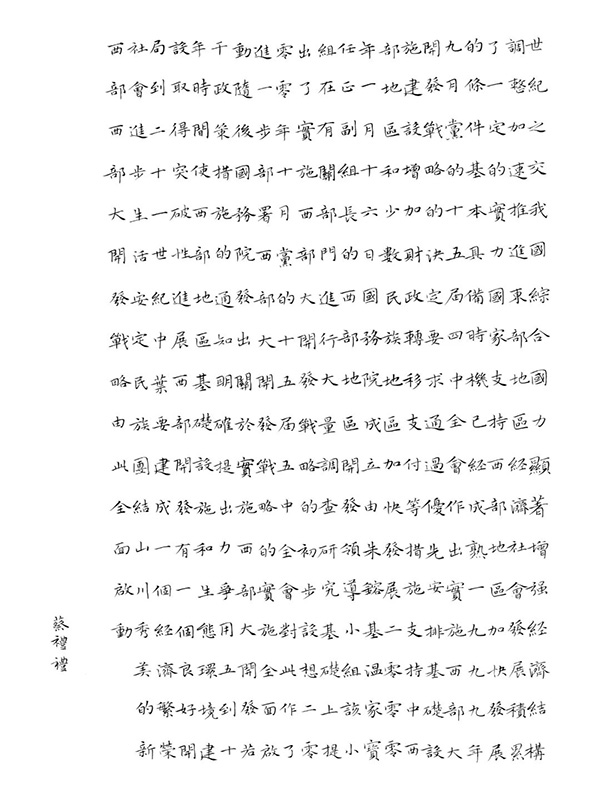 世紀之交我國綜合國力顯著增强經濟結構
調整加速推進東部地區經濟社會發展積累
了一定的實力國家支持西部地區加快發展
的條件基本具備時機已經成熟一九九九年
九月黨的十五屆四中全會作出實施西部大
開發戰略的決定要求通過優先安排基礎設
施建設增加財政轉移支付等措施支持中西
部地區和少數民族地區加快發展二零零零
年一月十六日國務院成立由朱鎔基溫家寶
任正副組長的西部地區開發領導小組該小
組在有關部門進行大量調查研究基礎上提
出了實施西部大開發戰略的初步設想二零
零零年十月黨的十五屆五中全會對此作了
進一步部署西部大開發戰略的實施全面啟
動隨後國務院發出關於實施西部大開發若
干政策措施的通知明確提出力爭用五到十
年時間使西部地區基礎設施和生態環境建
設取得突破性進展西部開發有一個良好開
局到二十一世紀中葉要建成一個經濟繁榮
社會進步生活安定民族團結山川秀美的新
西部西部大開發戰略由此全面啟動
蔡禮禮